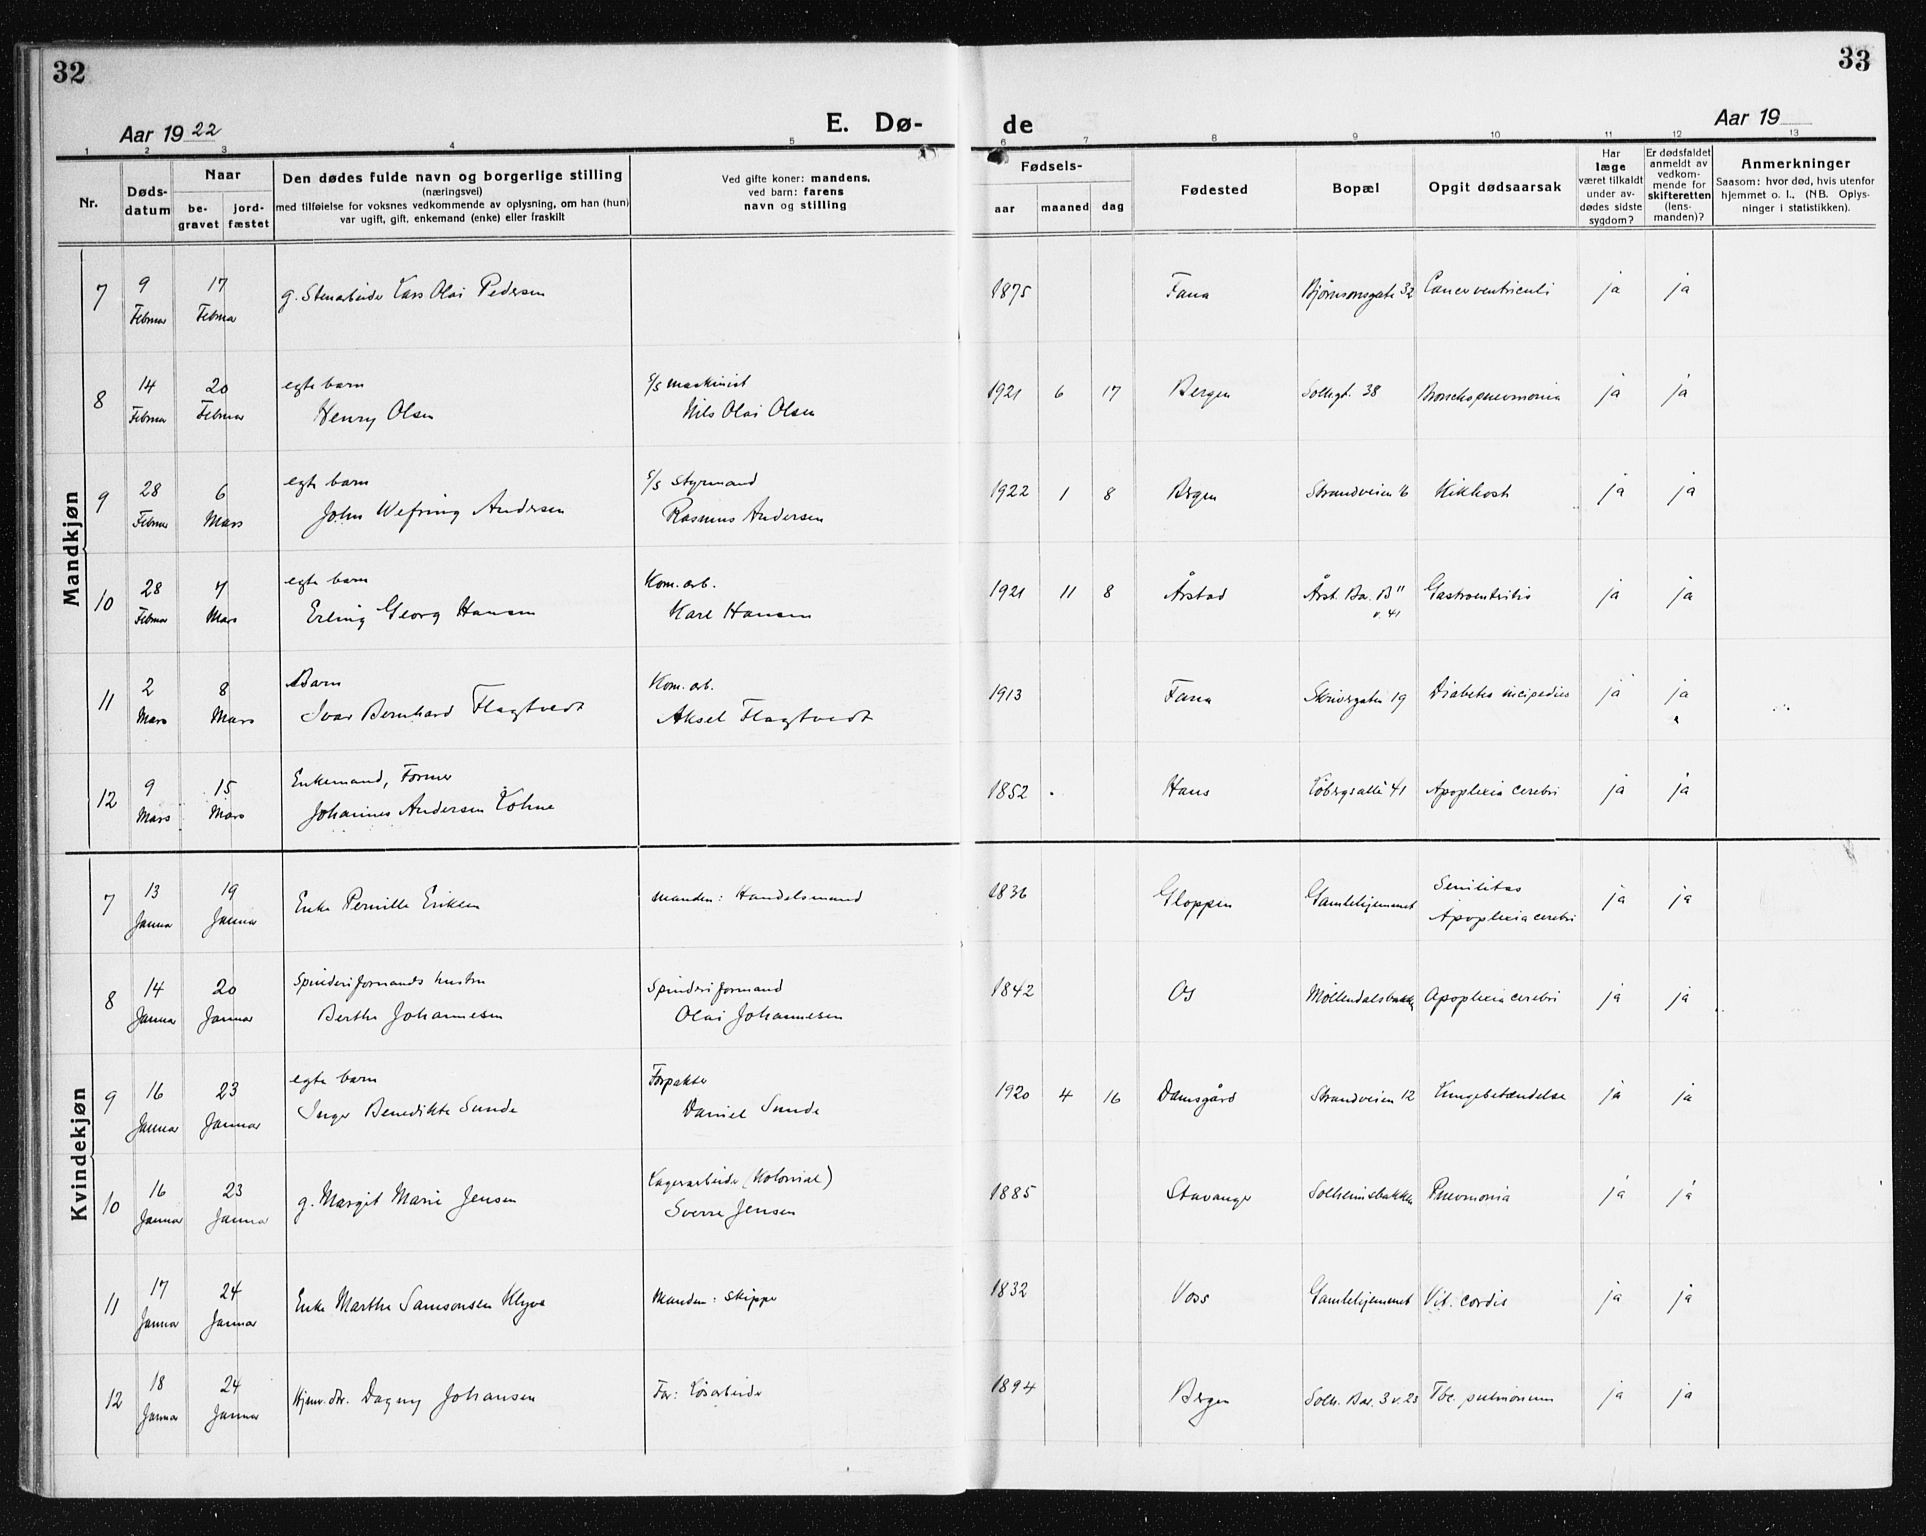 32
33
Aar 1922
E. Dø-
de
Aar 19
1 2 3 4 5 6 7 8 9 10 11 12 13
Nr.
Døds-
datum
Naar
be-
gravet
jord-
fæstet
Den dødes fulde navn og borgerlige stilling
(næringsvei)
med tilføielse for voksnes vedkommende av oplysning, om han (hun)
var ugift, gift, enkemand (enke) eller fraskilt
Ved gifte koner: mandens,
ved barn: farens
navn og stilling
Fødsels-
aar
maaned
dag
Fødested
Bopæl
Opgit dødsaarsak
Har
læge
været tilkaldt
under av-
dødes sidste
sygdom?
Er dødsfaldet
anmeldt av
vedkom-
mende for
skifteretten
(lens-
manden)?
Anmerkninger
Saasom: hvor død, hvis utenfor
hjemmet o. l., (NB. Oplys-
ninger i statistikken).
Mandkjøn
7 9 Februar 17 Februar g. Stenarbeider Lars Olai Pedersen 1875 Fana Bjørnsonsgate 32 Cancer ventriculi ja ja
8 14 Februar 20 Februar egte barn
Henry Olsen
s/s maskinist
Nils Olai Olsen
1921 6 17 Bergen Solhgt. 38 Bronchopneumonia ja ja
9 28 Februar 6 Mars egte barn
John Wefring Andersen
s/s styrmand
Rasmus Andersen
1922 1 8 Bergen Strandveien 16 Kikhoste ja ja
10 28 Februar 7 Mars egte barn
Erling Georg Hansen
Kom. arb.
Karl Hansen
1921 11 8 Årstad Årst. Bar. B"
v. 41
Gastroenteritis ja ja
11 2 Mars 8 Mars Barn
Ivar Bernhard Flagtvedt
Kom. arb.
Aksel Flagtvedt
1913 Fana Skrivergaten 19 Diabetes incipedies ja ja
12 9 Mars 15 Mars Enkemand, Former
Johannes Andersen Løhne
1852 Haus Løbergsallé 41 Apoplexia cerebri ja ja
Kvindekjøn
7 13 Januar 19 Januar Enke Pernille Eriksen manden: Handelsmand 1836 Gloppen Gamlehjemmet Senilitas
Apoplexia cerebri
ja ja
8 14 Januar 20 Januar Spinderiformands hustru
Berthe Johannesen
Spinderiformand
Olai Johannesen
1842 Os Møllendalsbakken Apoplexia cerebri ja ja
9 16 Januar 23 Januar egte barn
Inger Benedikte Sunde
Forpakter
Daniel Sunde
1920 4 16 Damsgård Strandveien 12 Lungebetændelse ja ja
10 16 Januar 23 Januar g. Margit Marie Jensen Lagerarbeider (Kolonial)
Sverre Jensen
1885 Stavanger Solheimsbakken Pneumonia ja ja
11 17 Januar 24 Januar Enke Marthe Samsonsen Klyve Manden: skipper 1832 Voss Gamlehjemmet Vit. cordis ja ja
12 18 Januar 24 Januar Hjemv. dtr. Dagny Johansen Far: Løsarbeider 1894 Bergen Solh. Bar. 3 v. 23 Tbc. pulmonum ja ja